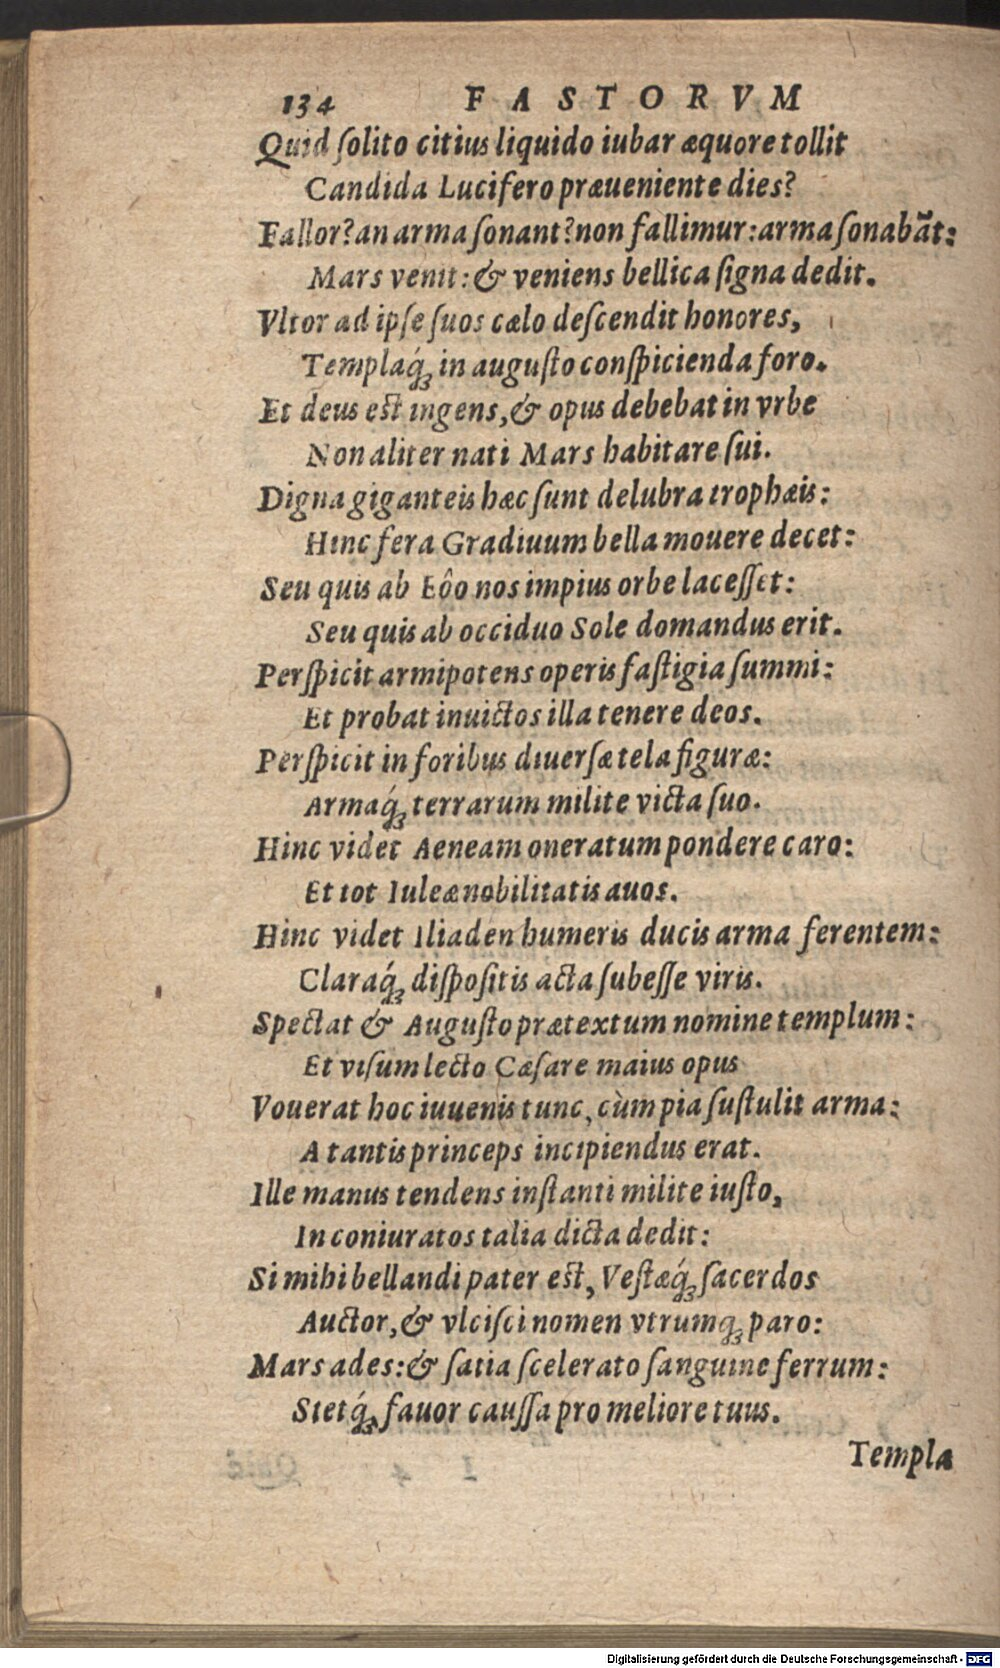 134 FASTORVM
Quid ſolito citius liquido iubar æquore tollit
Candida Lucifero præueniente dies?
Fallor? an arma ſonant? non fallimur: arma ſonabãt:
Mars venit: & veniens bellica ſigna dedit.
Vltor ad ipſe ſuos cælo deſcendit honores,
Templaq́; in auguſto conſpicienda foro.
Et deus est ingens, & opus debebat in vrbe
Non aliter nati Mars habitare ſui.
Digna giganteis hæc ſunt delubra trophæis:
Hinc fera Gradiuum bella mouere decet:
Seu quis ab Eôo nos impius orbe laceſſet:
Seu quis ab occiduo Sole domandus erit.
Perſpicit armipotens operis faſtigia ſummi:
Et probat inuictos illa tenere deos.
Perſpicit in foribus diuerſæ tela figuræ:
Armaq́; terrarum milite victa ſuo.
Hinc videt Aeneam oneratum pondere caro:
Et tot Iuleæ nobilitatis auos.
Hinc videt Iliaden humeris ducis arma ferentem:
Claraq́; diſpoſitis acta ſubeſſe viris.
Spectat & Auguſto prætextum nomine templum:
Et viſum lecto Cæſare maius opus
Vouerat hoc iuuenis tunc, cùm pia ſuſtulit arma:
A tantis princeps incipiendus erat.
Ille manus tendens inſtanti milite iuſto,
In coniuratos talia dicta dedit:
Si mihi bellandi pater est, Veſtæq́; ſacerdos
Auctor, & vlciſci nomen vtrumq; paro:
Mars ades: & ſatia ſcelerato ſanguine ferrum:
Stetq́; fauor cauſſa pro meliore tuus.
Templa
Digitalisierung gefördert durch die Deutsche Forschungsgemeinschaft - DFG